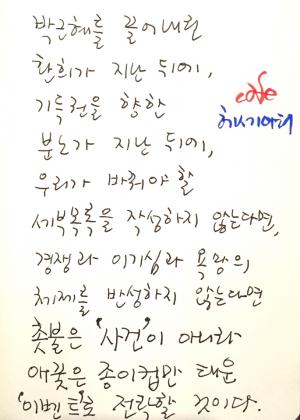 박근혜를 끌어내린
환희가 지난 뒤에,
기득권을 향한
분노가 지난 뒤에,
우리가 바꿔야 할
세부목록을 작성하지 않는다면,
경쟁과 이기심과 욕망의
체제를 반성하지 않는다면
촛불은 '사건'이 아니라
애꿎은 종이컵만 태운
'이벤트'로 전락할 것이다.
cafe